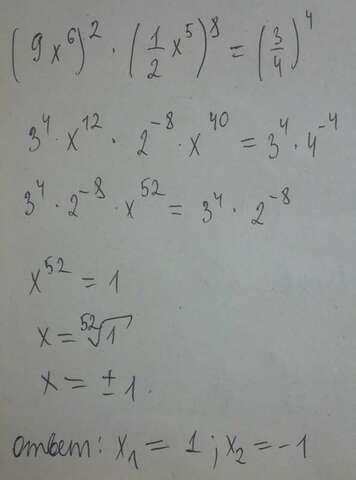 (9x⁶)² · (1/2 x⁵)⁸ = (3/4)⁴
3⁴ · x¹² · 2⁻⁸ · x⁴⁰ = 3⁴ · 4⁻⁴
3⁴ · 2⁻⁸ · x⁵² = 3⁴ · 2⁻⁸
x⁵² = 1
x = ⁵²√1
x = ± 1.
ответ: x₁ = 1 ; x₂ = -1